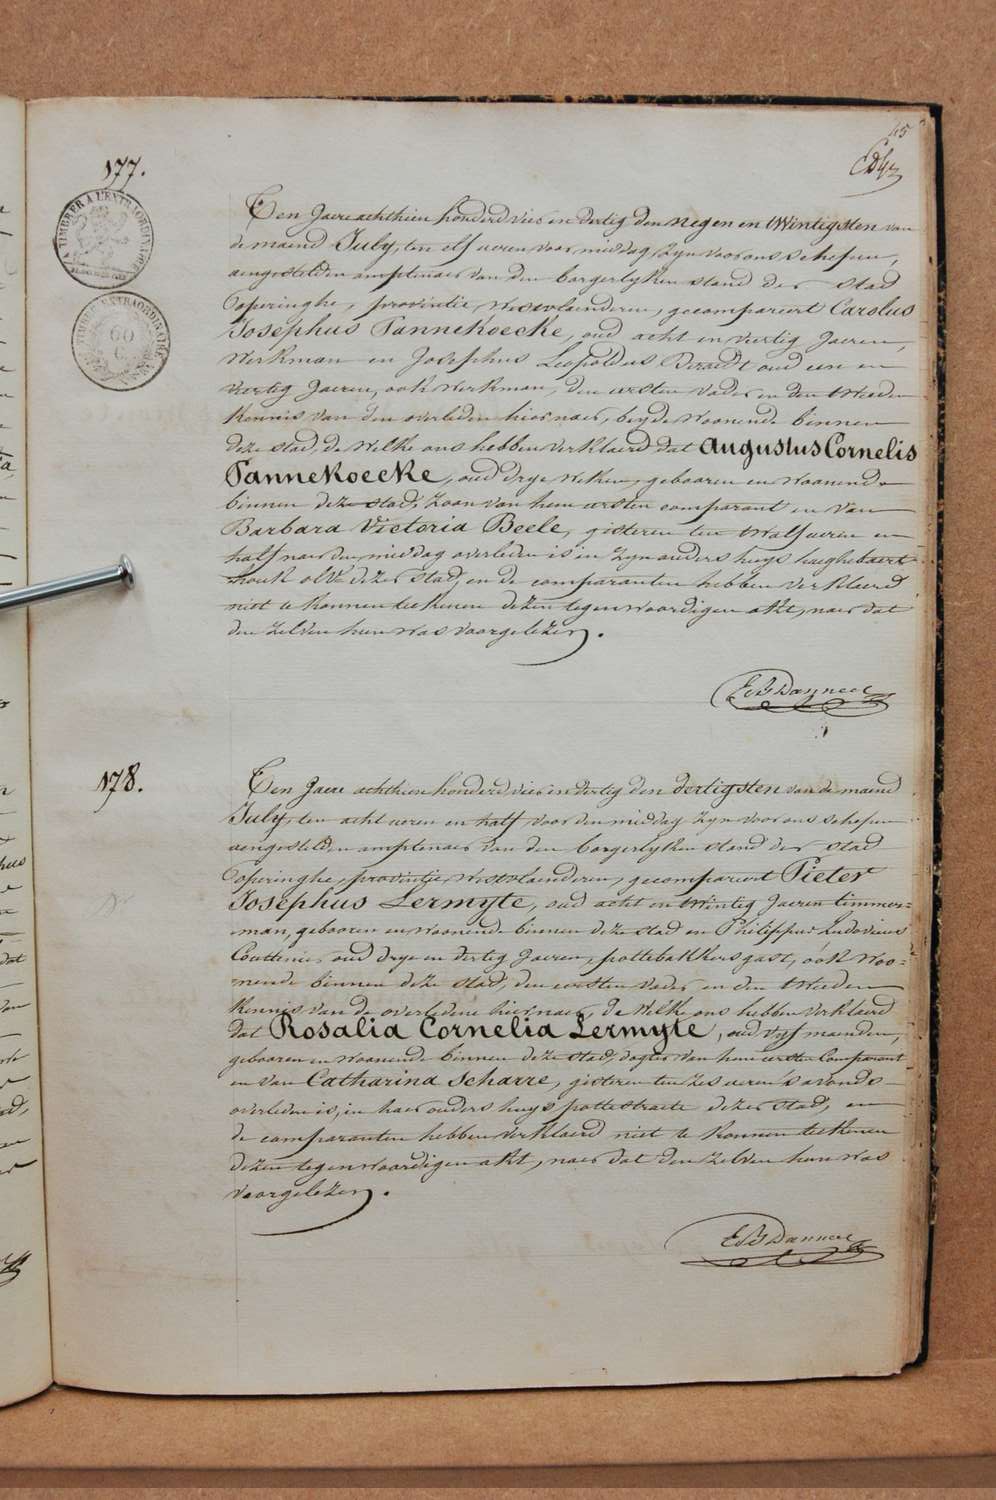 45
177.
TIMBRER A L'EXTRAORDINAIRE
60
C
Ten Jaere achthien honderd vier en dertig den negen en twintigsten van
de maend July, ten elf ueren voor middag, zyn voor ons schepen,
aengestelden amptenaer van den borgerlyken stand der stad
Poperinghe, provintie Westvlaenderen, gecompareert Carolus
Josephus Pannekoecke, oud acht en veertig Jaeren,
Werkman en Josephus Leopoldus Deraedt oud een en
veertig Jaeren, ook Werkman, den eersten vader en den tweeden
kennis van den overleden hiernaer, beyde woonende binnen
deze stad, de welke ons hebben verklaerd dat Augustus Cornelis
Pannekoecke, oud drye weken, gebooren en woonende
binnen deze stad, zoon van hem eersten comparant en van
Barbara Victoria Beele, gisteren ten twalf ueren en
half naer den middag overleden is in zyn ouders huys haeghebaert
houk dezer stad, en de comparanten hebben verklaerd
niet te konnen teekenen dezen tegenwoordigen akt, naer dat
den zelven hun was voorgelezen.
178.
Ten Jaere achthien honderd vier en dertig den dertigsten van de maend
July, ten acht ueren en half voor den middag zyn voor ons schepen
aengestelden amptenaer van den borgerlyken stand der stad
Poperinghe, provintie Westvlaenderen, gecompareert Pieter
Josephus Lermyte, oud acht en twintig Jaeren timmer=
man, gebooren en woonende binnen deze stad en Philippus Ludovicus
Couttenier oud drye en dertig Jaeren, pottebakkers gast, ook woo=
nende binnen deze stad, den eersten vader en den tweeden
kennis van de overledene hiernaer, de welke ons hebben verklaerd
dat Rosalia Cornelia Lermyte, oud vyf maenden,
gebooren en woonende binnen deze stad, dogter van hem eersten Comparant
en van Catharina Scharre, gisteren ten zes ueren 's avonds
overleden is, in haer ouders huys pottestraete dezer stad, en
de comparanten hebben verklaerd niet te konnen teekenen
dezen tegenwoordigen akt, naer dat den zelven hun was
voorgelezen.